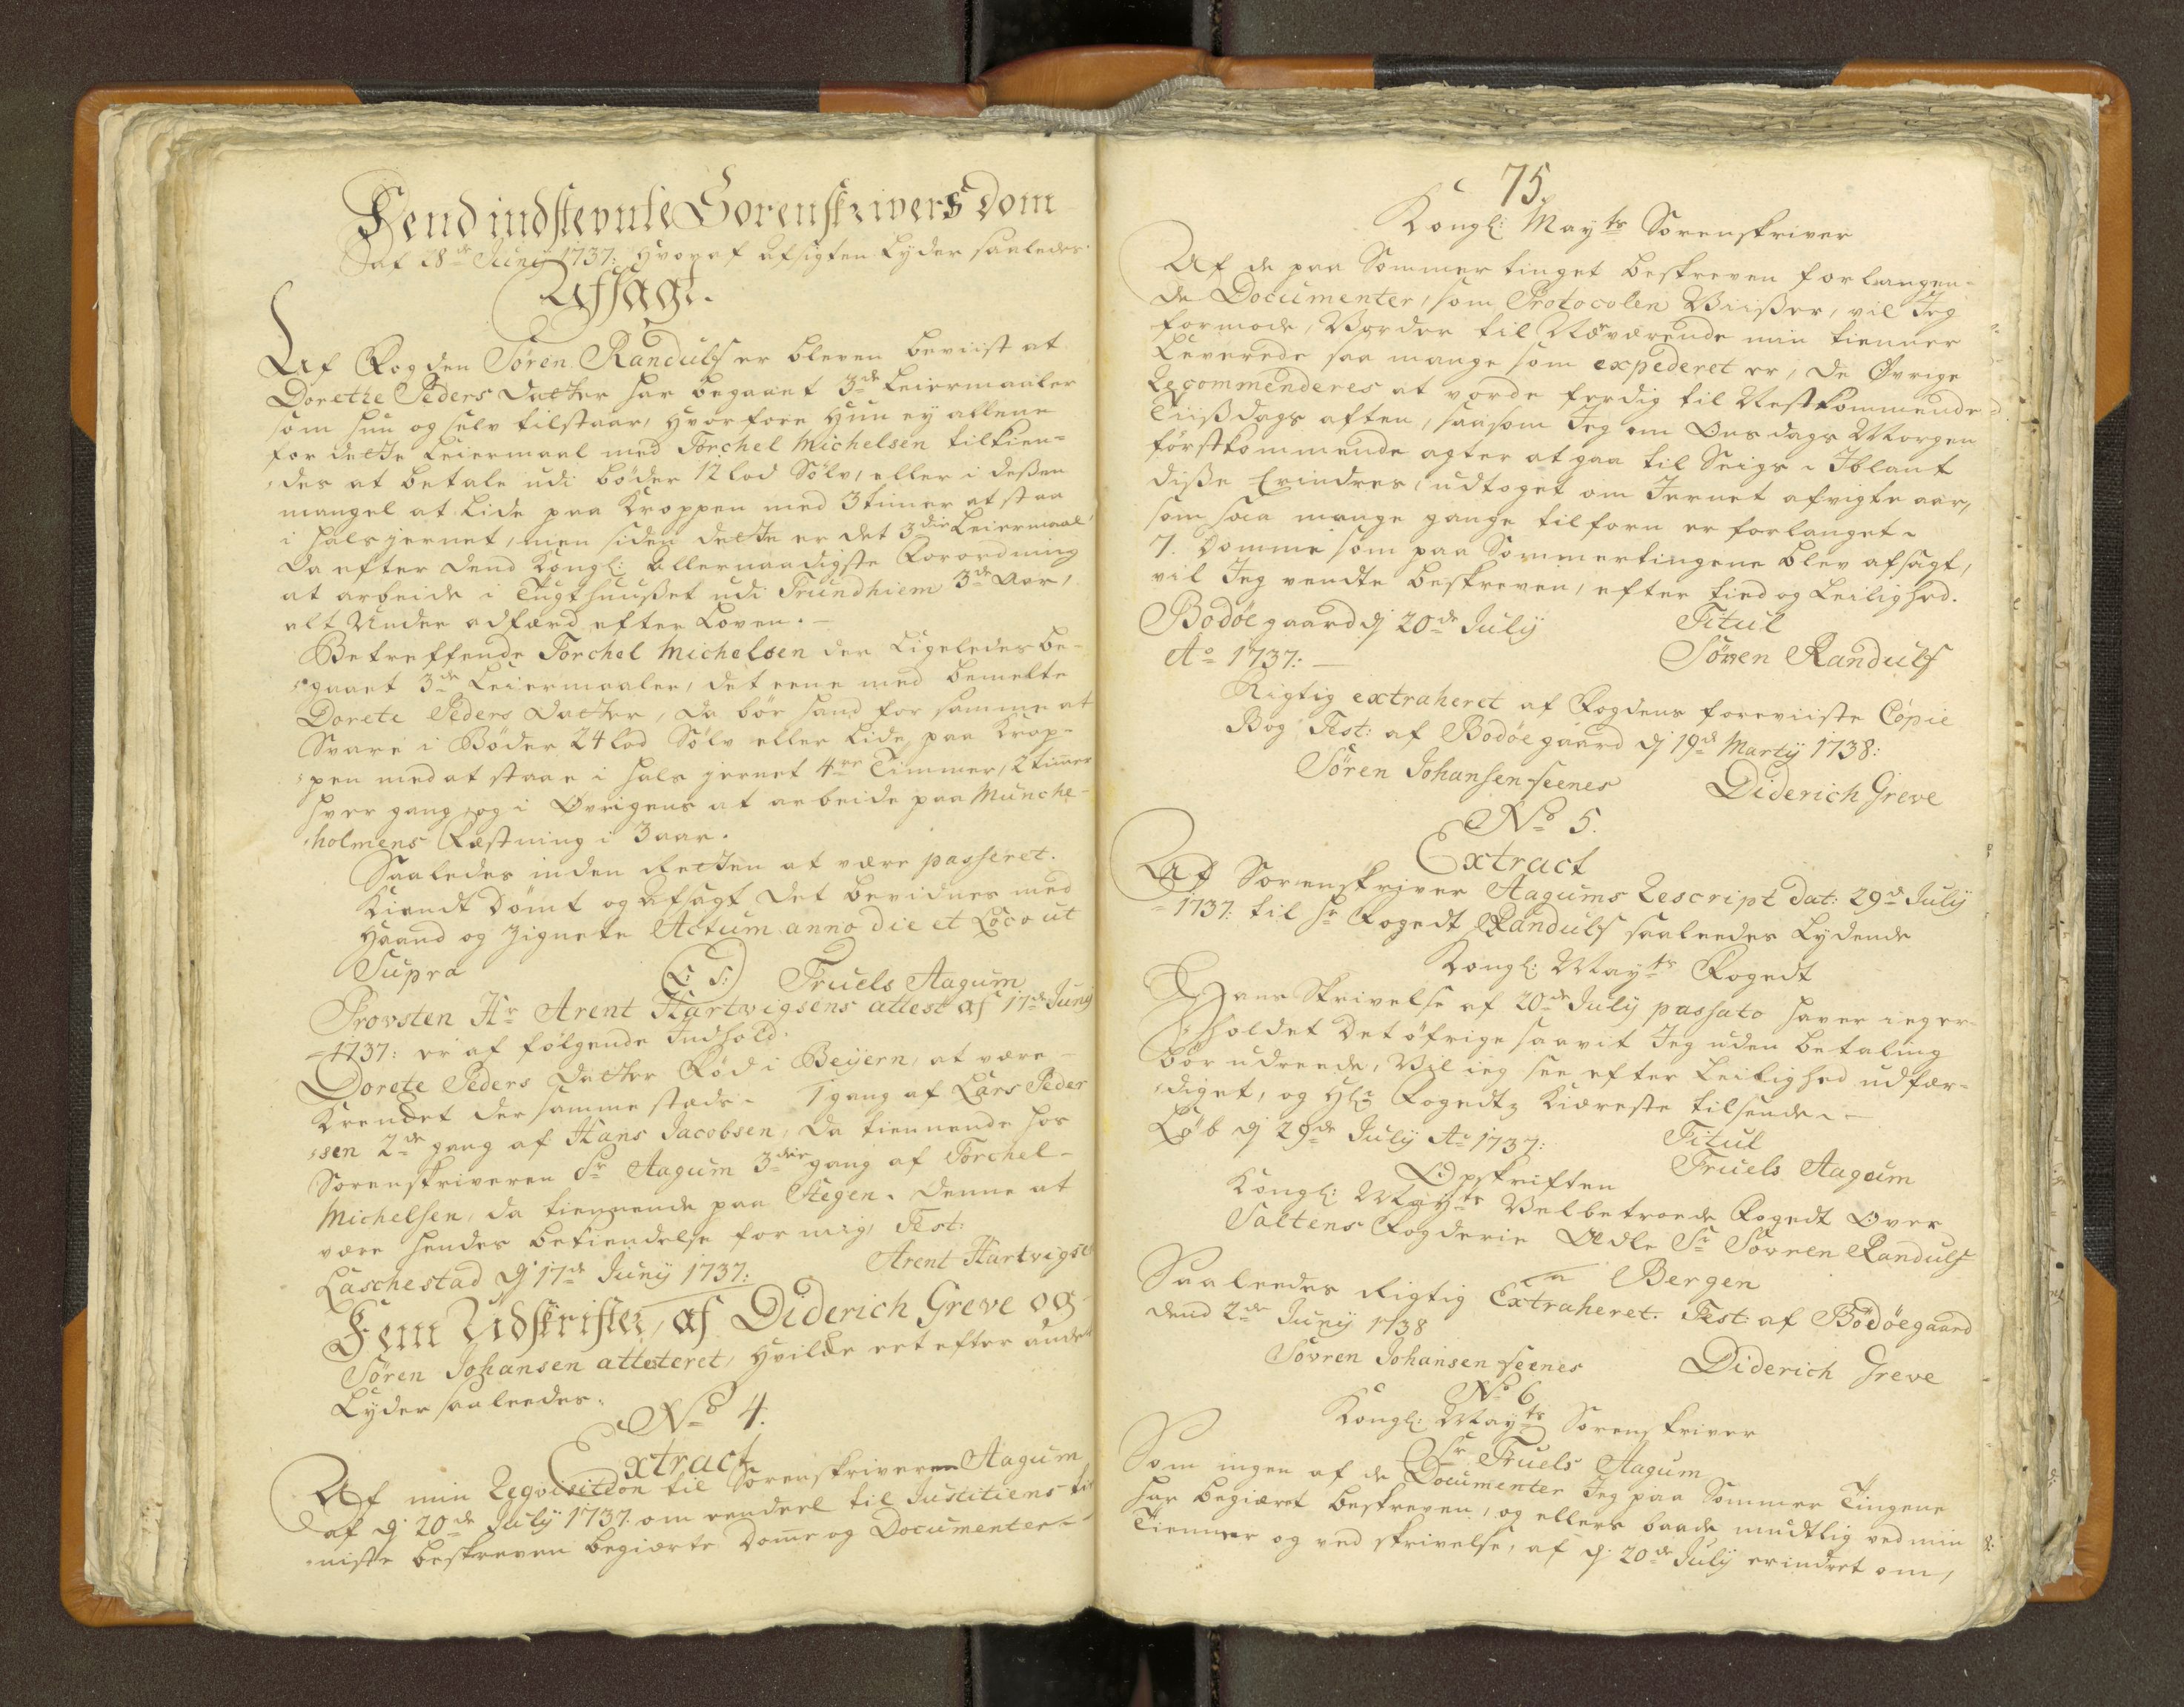 Dend indstevnte Sorenskrivers Dom
Af 28de Juny 1737: Hvoraf Afsigten Lyder saaledes
Affsagt.
Af Fogden Søren Randulf er bleven beviist at
Dorethe Peders Datter har begaaet 3de Leiermaaler
som hun og selv tilstaar, Hvorfore Hun ey allene
for dette Leiermaal med Torchel Michelsen tilkien-
des at betale udi bøder 12 lod Sølv, eller i deßen
mangel at Lide paa Kroppen med 3 timer at staa
i Halsjernet, men siden dette er det 3die Leiermaal
da efter Dend Kongl: Allernaadigste Forordning
at arbeide i Tugthuußet udi Trundhiem 3de Aar,
alt Under adfærd efter Loven.
Betreffende Torchel Michelsen der Ligeledes be-
gaaet 3de Leiermaaler, det eene med bemelte
Dorete Peders Datter, da bør hand for samme at
Svare i Bøder 24 lod Sølv eller Lide paa Krop-
pen med at staae i Hals jernet 4re Timmer, 2 timer
hver gang, og i Øvrigens at arbeide paa Munche-
holmens Fæstning i 3 aar.
Saaledes inden Retten at være passeret.
Kiendt Dømt og Afsagt det bevidner med
Haand og Zignete Actum anno die et Loco ut
Supra (L: S:) Truels Aagum
Provsten Hr Arent Hartvigsens attest af 17de Juny
1737: er af følgende Indhold:
Dorete Peders Datter Fød i Beyern, at være
Krenket der sammestæds. 1 gang af Lars Peder
sen 2de gang af Hans Jacobsen, da tiennende hos
Sorenskriveren Sr Aagum 3die gang af Torchel
Michelsen, da tiennende paa Stegen. Denne at
være hendes bekiendelse for mig, Test:
Laschestad dj 17de Juny 1737: Arent Hartvigsen
Fem Udskrifter, af Diderich Greve og
Søren Johansen atteteret, Hvilke eet efter andet
Lyder saaleedes:
No 4.
Extract
Af min Reqvisition til Sorenskriveren Aagum
af dj 20de July 1737. om eendeel til Justitiens
niste beskreven begiærte Dome og Documenter
75.
Kongl: Mayts Sorenskriver
Af de paa Sommertinget beskreven forlangen-
de Documenter, som Protocolen Viißer, vil Jeg
formode, Vorder til Nærværende min tienner
Leverede saa mange som expederet er, de Øvrige
Recommenderes at vorde ferdig til Nestkommende
Tiißdags aften, saasom Jeg om Onsdags Morgen
førstkommende agter at gaa til Seigs. Iblant
diße Erindres, udtoget om Jernet afvigte aar,
som saa mange gange tilforn er forlanget.
7. Domme som paa Sommertingene blev afsagt,
vil Jeg vendte beskreven, efter tied og Leilighed.
Bodøegaard dj 20de July Titul
Ao 1737: Søvren Randulf
Rigtig extraheret af Fogdens foreviiste Copie
Bog Test: af Bodøegaard dj 19de Marty 1738:
Søren Johansen seenes Diderich Greve
No 5.
Extract
Af Sorenskriver Aagums Rescript dat: 29de July
1737. til Sr Fogedt Randulf saaleedes Lydende
Kongl: Mayts Fogedt
Hans Skrivelse af 20de July passato haver ieg er-
holdet Det øfrige saavit Jeg uden betaling
bør udreede, Vil ieg see efter Leilighed udfær-
diget, og Hr Fogedtz kiæreste tilsende.
Løb dj 29de July Ao 1737: Titul
Truels Aagum
Opskriften
Kongl: Mayts Velbetroede Fogedt Over
Saltens Fogderie Ædle Sr Søvren Randulf
in Bergen
Saaleedes Rigtig Extraheret. Test: af Bodøegaard
dend 2de Juny 1738
Søvren Johansen seenes Diderich Greve
No 6
Kongl: Mayts Sorenskriver
Sr Truels Aagum
Som ingen af de Documenter Jeg paa Sommer Tingene
har begiæret beskreven, og ellers baade mundtlig ved min
Tienner og ved skrivelse, af dj 20de July erindret om,